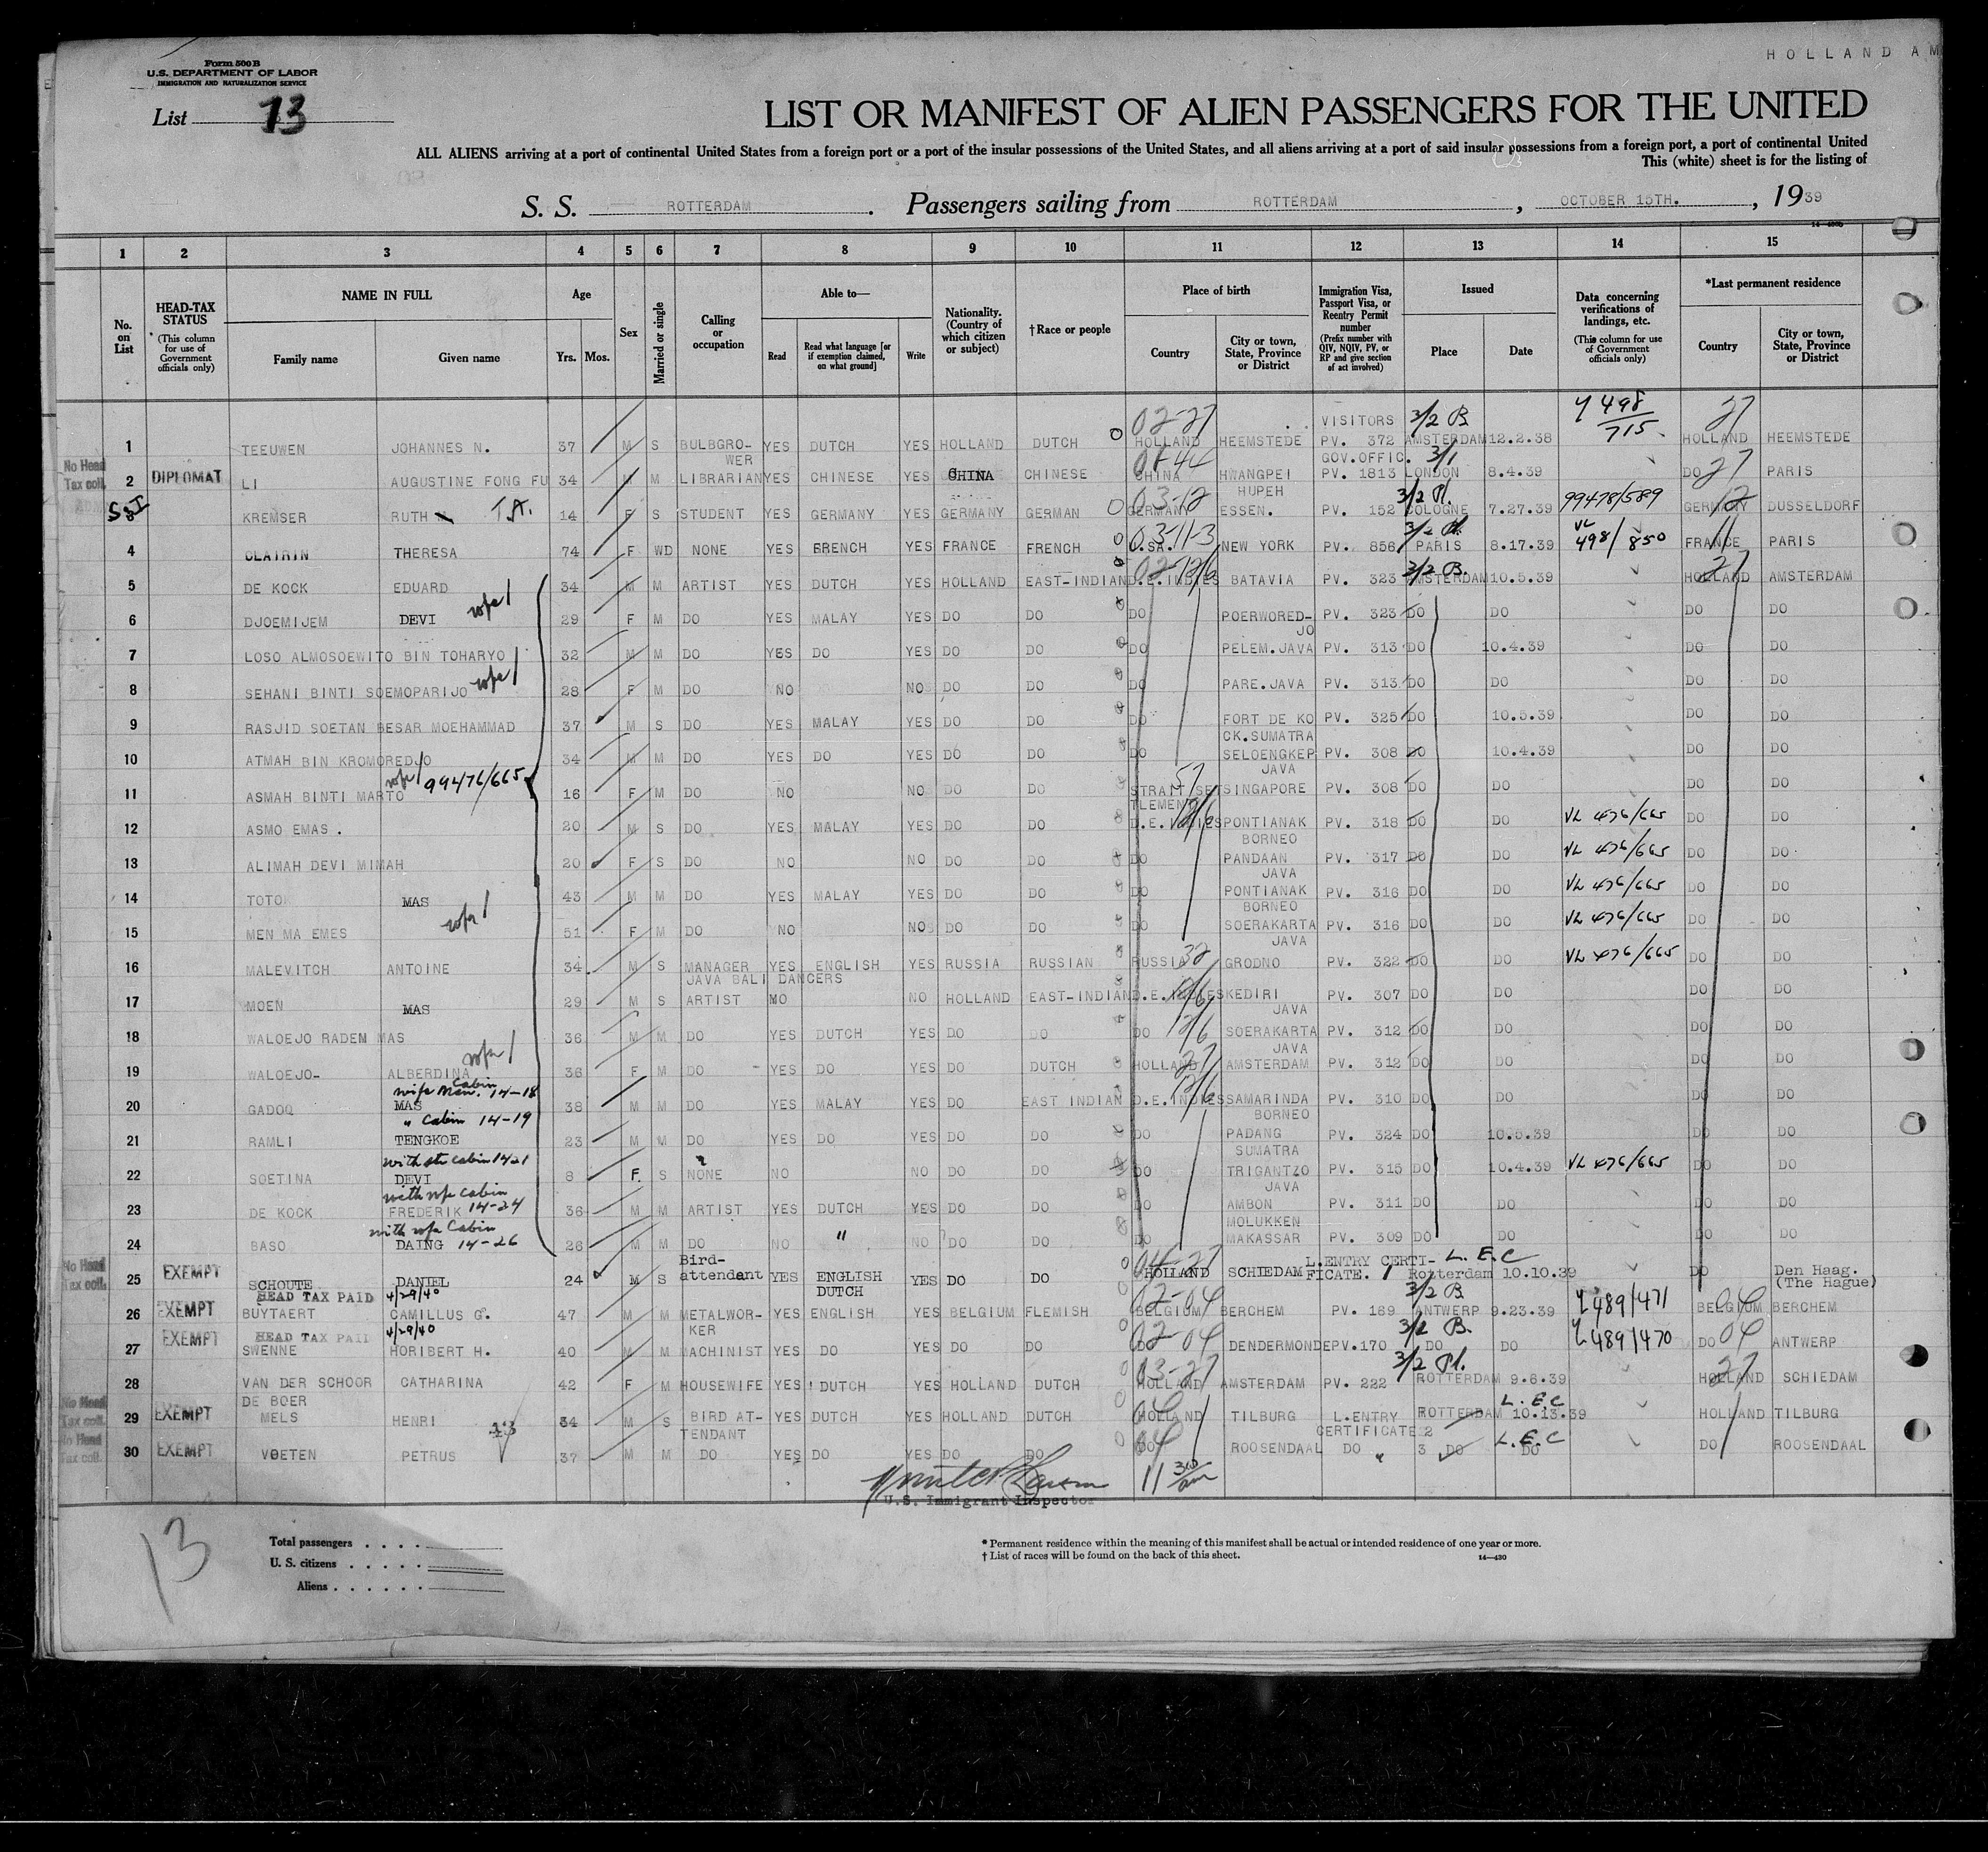 HOLLAND AM
Form 500 B
U.S. DEPARTMENT OF LABOR
IMMIGRATION AND NATURALIZATION SERVICE
List 13
LIST OR MANIFEST OF ALIEN PASSENGERS FOR THE UNITED
ALL ALIENS arriving at a port of continental United States from a foreign port or a port of the insular possessions of the United States, and all aliens arriving at a port of said insular possessions from a foreign port, a port of continental United
This (white) sheet is for the listing of
S. S. ROTTERDAM. Passengers sailing from ROTTERDAM, OCTOBER 15TH., 1939
1 2 3 4 5 6 7 8 9 10 11 12 13 14 15
No. on List
HEAD-TAX STATUS (This column for use of Government officials only)
NAME IN FULL
Family name Given name
Age Yrs. Mos.
Sex
Married or single
Calling or occupation
Able to—
Read Read what language [or if exemption claimed, on what ground] Write
Nationality. (Country of which citizen or subject)
†Race or people
Place of birth
Country City or town, State, Province or District
Immigration Visa, Passport Visa, or Reentry Permit number (Prefix number with QIV, NQIV, PV, or RP and give section of act involved)
Issued
Place Date
Data concerning verifications of landings, etc. (This column for use of Government officials only)
*Last permanent residence
Country City or town, State, Province or District
02-27 VISITORS 3/2 B 498/715 27
1 TEEUWEN JOHANNES N. 37 M S BULBGRO-WER YES DUTCH YES HOLLAND DUTCH HOLLAND HEEMSTEDE PV. 372 AMSTERDAM 12.2.38 HOLLAND HEEMSTEDE
No Head Tax coll. 2 DIPLOMAT LI AUGUSTINE FONG FU 34 M M LIBRARIAN YES CHINESE YES CHINA CHINESE 01-44 CHINA HWANGPEI HUPEH GOV.OFFIC. 3/1 PV. 1813 LONDON 8.4.39 DO 27 PARIS
3 KREMSER RUTH 14 F S STUDENT YES GERMANY YES GERMANY GERMAN 03-12 GERMANY ESSEN. PV. 152 3/2 Pl. COLOGNE 7.27.39 99478/589 GERMANY 12 DUSSELDORF
4 CLAIRIN THERESA 74 F WD NONE YES FRENCH YES FRANCE FRENCH 03-11-3 U.SA. NEW YORK PV. 856 PARIS 8.17.39 VL 498/850 FRANCE 11 PARIS
5 DE KOCK EDUARD 34 M M ARTIST YES DUTCH YES HOLLAND EAST-INDIAN D.E.INDIES BATAVIA PV. 323 3/2 B. AMSTERDAM 10.5.39 HOLLAND 27 AMSTERDAM
6 DJOEMIJEM DEVI wife 29 F M DO YES MALAY YES DO DO DO POERWORED-JO PV. 323 DO DO DO DO
7 LOSO ALMOSOEWITO BIN TOHARYO 32 M M DO YES DO YES DO DO DO PELEM.JAVA PV. 313 DO 10.4.39 DO DO
8 SEHANI BINTI SOEMOPARIJO wife 28 F M DO NO NO DO DO DO PARE.JAVA PV. 313 DO DO DO DO
9 RASJID SOETAN BESAR MOEHAMMAD 37 M S DO YES MALAY YES DO DO DO FORT DE KOCK.SUMATRA PV. 325 DO 10.5.39 DO DO
10 ATMAH BIN KROMOREDJO 34 M M DO YES DO YES DO DO DO SELOENGKEP JAVA PV. 308 DO 10.4.39 DO DO
11 ASMAH BINTI MARTO wife 99476/665 16 F M DO NO NO DO DO 57 STRAIT SETTLEMENT SINGAPORE PV. 308 DO DO DO DO
12 ASMO EMAS. 20 M S DO YES MALAY YES DO DO D.E.INDIES PONTIANAK BORNEO PV. 318 DO DO VL 476/665 DO DO
13 ALIMAH DEVI MIMAH 20 F S DO NO NO DO DO DO PANDAAN JAVA PV. 317 DO DO VL 476/665 DO DO
14 TOTO MAS 43 M M DO YES MALAY YES DO DO DO PONTIANAK BORNEO PV. 316 DO DO VL 476/665 DO DO
15 MEN MA EMES wife 51 F M DO NO NO DO DO DO SOERAKARTA JAVA PV. 316 DO DO VL 476/665 DO DO
16 MALEVITCH ANTOINE 34 M S MANAGER JAVA BALI DANCERS YES ENGLISH YES RUSSIA RUSSIAN RUSSIA 32 GRODNO PV. 322 DO DO VL 476/665 DO DO
17 MOEN MAS 29 M S ARTIST NO NO HOLLAND EAST-INDIAN D.E.INDIES KEDIRI JAVA PV. 307 DO DO DO DO
18 WALOEJO RADEM MAS 36 M M DO YES DUTCH YES DO DO DO 12/6 SOERAKARTA JAVA PV. 312 DO DO DO DO
19 WALOEJO- ALBERDINA wife 36 F M DO YES DO YES DO DUTCH HOLLAND 27 AMSTERDAM PV. 312 DO DO DO DO
wife Men. Cabin 14-18
20 GADOQ MAS 38 M M DO YES MALAY YES DO EAST INDIAN D.E.INDIES 12/6 SAMARINDA BORNEO PV. 310 DO DO DO DO
" Cabin 14-19
21 RAMLI TENGKOE 23 M M DO YES DO YES DO DO DO PADANG SUMATRA PV. 324 DO 10.5.39 DO DO
22 SOETINA DEVI 8 F. S NONE NO NO DO DO DO TRIGANTZO JAVA PV. 315 DO 10.4.39 VL 476/665 DO DO
with wfe cabin 14-24
23 DE KOCK FREDERIK 36 M M ARTIST YES DUTCH YES DO DO DO AMBON MOLUKKEN PV. 311 DO DO DO DO
with wfe Cabin 14-26
24 BASO DAING 26 M M DO NO " NO DO DO DO MAKASSAR PV. 309 DO DO DO DO
No Head Tax coll. 25 EXEMPT SCHOUTE DANIEL 24 M S Bird-attendant YES ENGLISH DUTCH YES DO DO 04-27 HOLLAND SCHIEDAM L.ENTRY CERTIFICATE. 1 L.E.C Rotterdam 10.10.39 DO Den Haag. (The Hague)
HEAD TAX PAID 4/29/40
26 EXEMPT BUYTAERT CAMILLUS G. 47 M M METALWOR-KER YES ENGLISH YES BELGIUM FLEMISH 02-04 BELGIUM BERCHEM PV. 169 3/2 B ANTWERP 9.23.39 489/471 BELGIUM 04 BERCHEM
HEAD TAX PAID 4/29/40
27 EXEMPT SWENNE HORIBERT H. 40 M M MACHINIST YES DO YES DO DO 02-04 DO DENDERMONDE PV.170 3/2 B. DO DO 489/470 DO 04 ANTWERP
28 VAN DER SCHOOR DE BOER CATHARINA 42 F M HOUSEWIFE YES DUTCH YES HOLLAND DUTCH 03-27 HOLLAND AMSTERDAM PV. 222 3/2 Pl. ROTTERDAM 9.6.39 HOLLAND 27 SCHIEDAM
No Head Tax coll. 29 EXEMPT MELS HENRI 34 M S BIRD ATTENDANT YES DUTCH YES HOLLAND DUTCH 04 HOLLAND TILBURG L.ENTRY CERTIFICATE 2 L.E.C ROTTERDAM 10.13.39 HOLLAND TILBURG
No Head Tax coll. 30 EXEMPT VOETEN PETRUS 37 M M DO YES DO YES DO DO 04 DO ROOSENDAAL DO " 3 DO L.E.C DO DO ROOSENDAAL
U.S. Immigrant Inspector
13
Total passengers
U. S. citizens
Aliens
* Permanent residence within the meaning of this manifest shall be actual or intended residence of one year or more.
† List of races will be found on the back of this sheet.
14—430